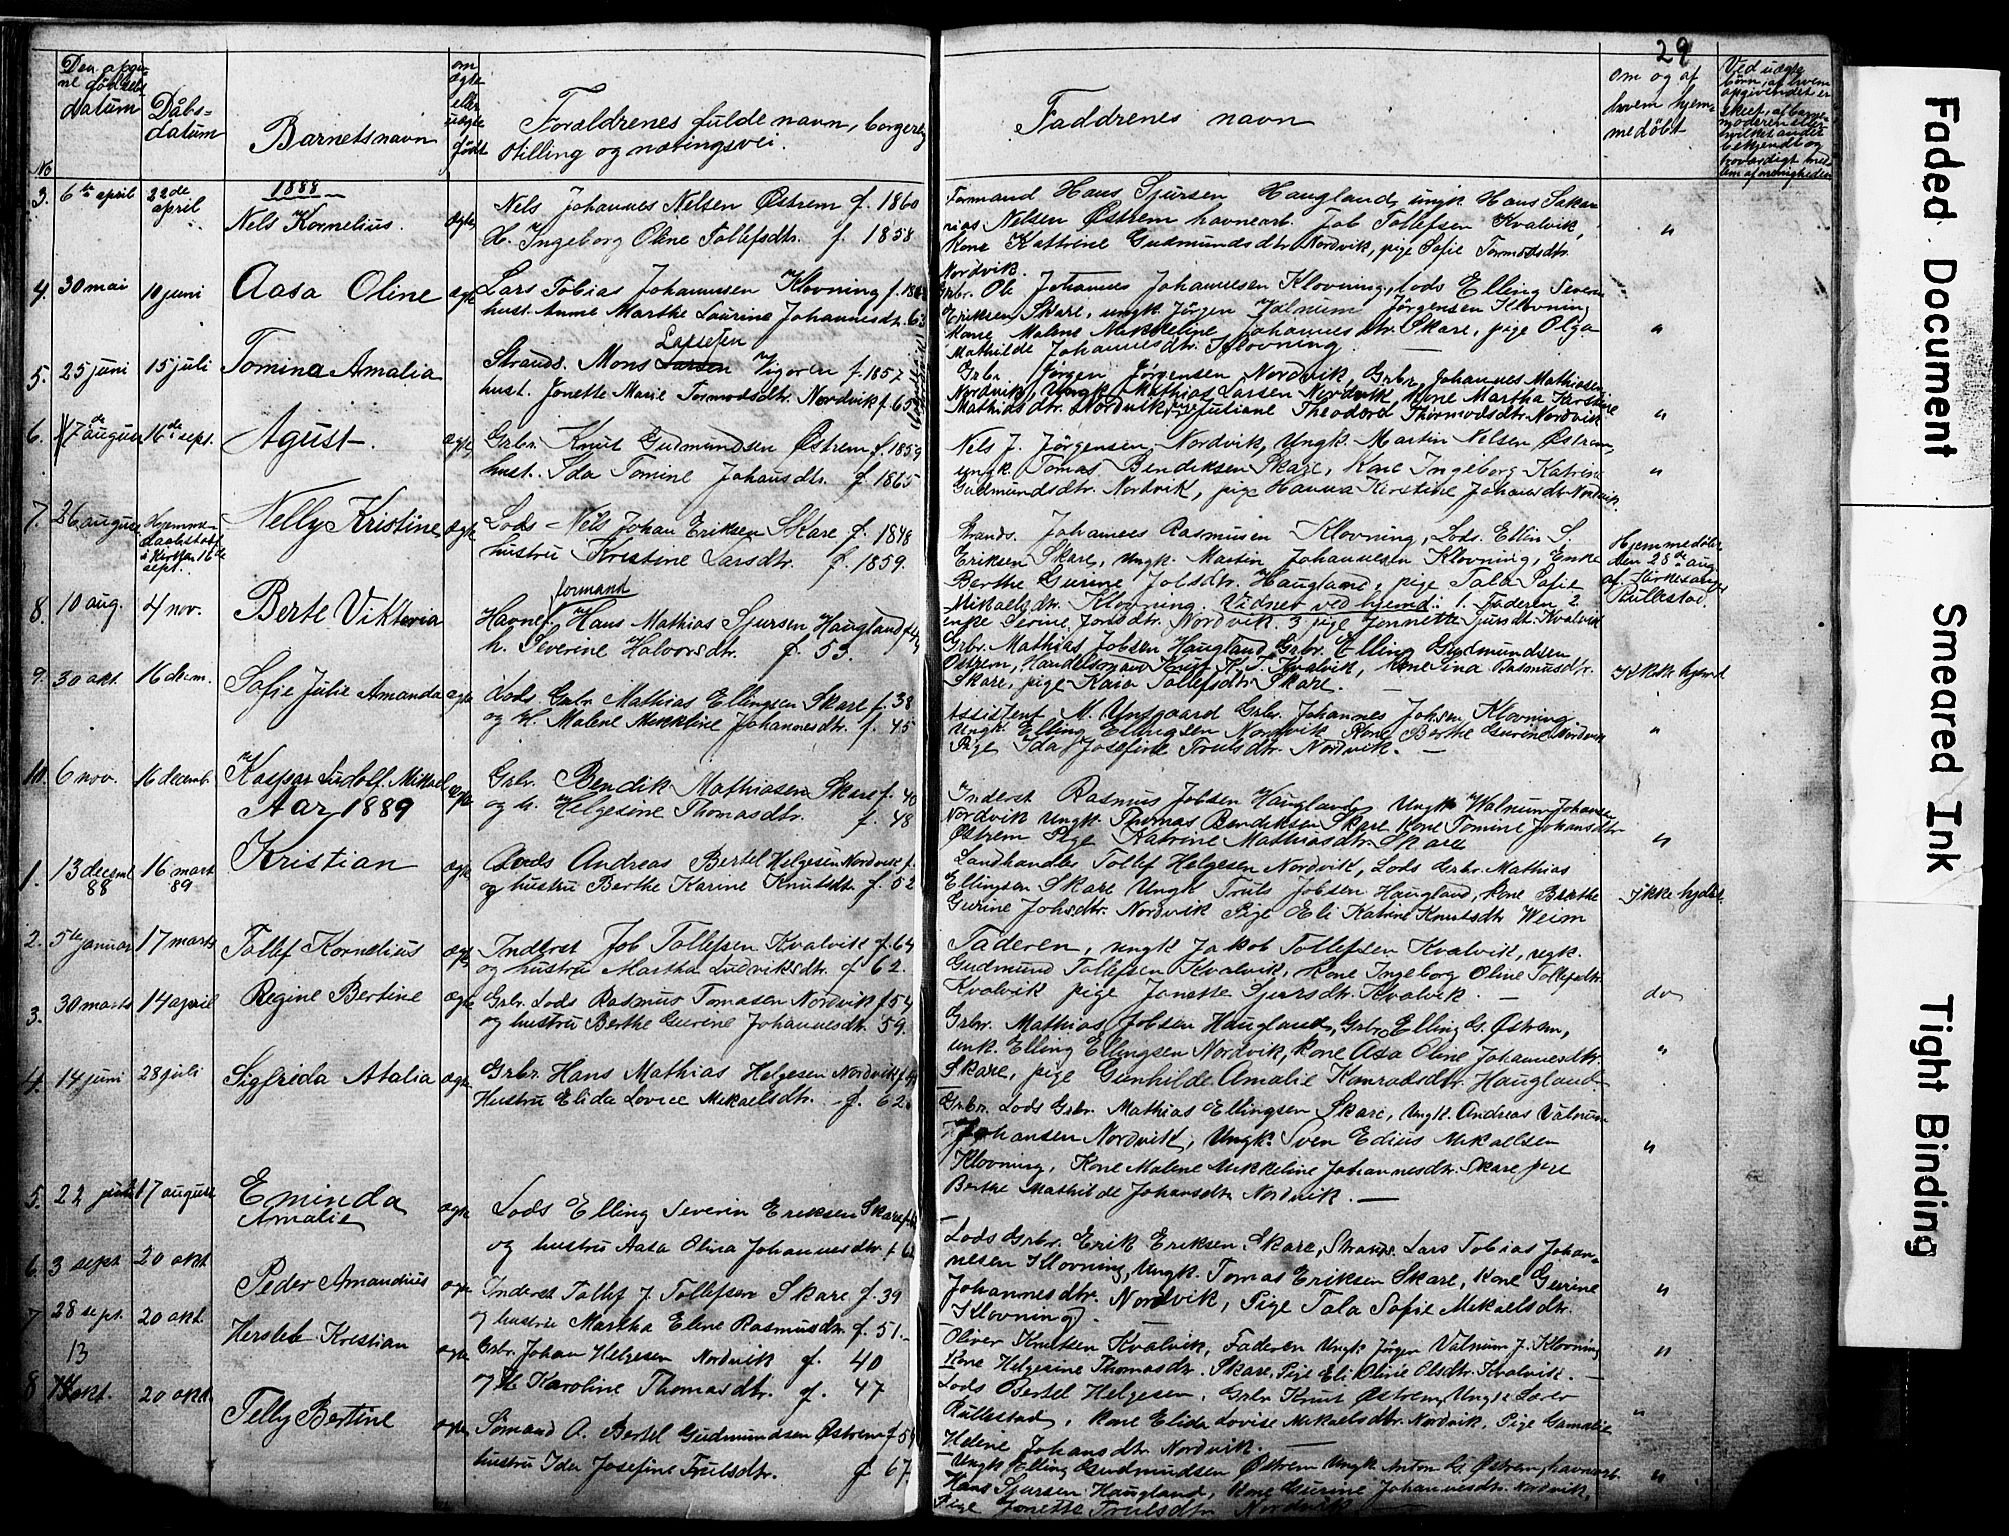 29
Den opgi-
ne fødsels
datum
Dåbs-
datum
Barnetsnavn
om
ægte
eller
uægte
født
Forældrenes fulde navn, borgerlig
stilling og næringsvei.
Faddrenes navn
om og af
hvem hjem-
medøbt
Ved uægte
børn, af hvem
opgivendet er
No
1888
3. 6te april 22de april Nels Kornelius. ægte
Nels Johannes Nelsen Østrem f. 1860
H. Ingeborg Oline Tollefsdtr. f. 1858
Formand Hans Sjursen Haugland, ungk. Hans Sakar
nias Nelsen Østrem havnearb. Job Tollefsen Kvalvik,
Kone Kattrine Gudmundsdtr Nordvik, pige Sofie Tormodsdtr.
Nordvik.
"
4. 30 mai 10 juni Aasa Oline ægte
Lars Tobias Johannesen Klovning f.
hust. Anne Marthe Laurine Johannesdtr.
Grbr. Ole Johannes Johannesen Klovning, Lods Elling Severin
Eriksen Skare, ungk. Jørgen Valnum Jørgensen Klovning
Kone Malene Mikkeline Johannesdtr. Skare, pige Olga
Mathilde Johannesdtr. Klovning.
"
5. 25 juni 15 juli Tomine Amalia
Lassesen
Strands. Mons Larsen Vigoren f. 1857
hust. Jonette Marie Tormodsdtr. Nordvik f. 65
Grbr. Jørgen Jørgensen Nordvik, Grbr. Johannes Mathiasen
Nordvik, Ungk. Mathias Larsen Nordvik, Kone Martha Karstine
Mathiasdtr. Nordvik, pige Juliane Theodora Thormodsdtr Nordvik
"
6. 17de august 16de sept. Agust. ægte
Grbr. Knut Gudmundsen Østrem f. 1859
hust. Ida Tomine Johansdtr. f. 1865
Nels J. Jørgensen Nordvik, Ungk. Martin Nelsen Østrem,
ungk. Tomas Bendiksen Skare, Kone Ingeborg Katrine
Gudmundsdtr. Nordvik, pige Hanna Kirstine Johansdtr Nordvik.
"
7. 26 august Hjemme-
i Kirken 16de
sept.
Nelly Kristine ægte
Lods Nels Johan Eriksen Skare f. 1848
hustru Kristine Larsdtr. f. 1859.
Strands. Johannes Rasmusen Klovning, Lods. Ellin S.
Eriksen Skare, Ungk. Martin Johannesen Klovning, Enke
Berthe Gurine Jobsdtr. Haugland, pige Tala Sofie
Mikaelsdtr. Klovning. Vidner ved hjemd.: 1. Faderen 2.
enke Serine Jonsdtr. Nordvik. 3 pige Jonnette Sjursdt. Kvalvik
Hjemmedøbt
den 28de aug.
af Kirkesanger
Rullestad.
8. 10 aug. 4 nov. Berte Viktoria
formand
Havnef. Hans Mathias Sjursen Haugland
h. Severine Halvorsdtr. f. 53.
Grbr. Mathias Jobsen Haugland, Grbr. Elling Gudmundsen
Østrem, Handelsmand Knut K. T. Kvalvik, Kone Sina Rasmusdtr.
Skare, pige Kaia Tollefsdtr. Skare.
Ikke hjemd
9. 30 okt. 16 decm. Sofie Julie Amanda ægte
Lods Grbr Mathias Ellingsen Skare f. 38
og h. Malene Mikkeline Johannesdtr. f. 45
Assistent M. Untgaard Grbr. Johannes Johsen Klovning
Ungk. Elling Ellingsen Nordvik Kone Berthe Gurine Nordvik
Pige Ida Josefine Trulsdtr. Nordvik.
"
10. 6 nov. 16 decemb. Kaspar Ludolf Mikael ægte
Grbr. Bendik Mathiasen Skare f. 40
og h. Helgesine Thomasdtr. f. 48
Inderst Rasmus Jobsen Haugland, Ungk Walnum Johansen
Nordvik ungk. Thomas Bendiksen Skare Kone Tomine Johansdtr
Østrem Pige Katrine Mathiasdtr. Skare
"
Aar 1889
1. 13 decemb 88 16 mart 89 Kristian ægte
Lods Andreas Bertel Helgesen Nordvik f.
og hustru Berthe Karine Knutsdtr. f. 52
Landhandler Tollef Helgesen Nordvik, Lods Grbr. Mathias
Ellingsen Skare Ungk Truls Jobsen Haugland, kone Berthe
Gurine Johsdtr. Nordvik Pige Eli Katrine Knutsdtr Weim
Ikke hjdbt.
2. 5te januar 17 marts Tollef Kornelius ægte
Inderst Job Tollefsen Kvalvik f. 64
og hustru Martha Ludviksdtr. f. 62.
Faderen, ungk Jakob Tollefsen Kvalvik, ungk.
Gudmund Tollefsen Kvalvik, kone Ingeborg Oline Tollefsdtr.
Kvalvik pige Jonette Sjursdtr. Kvalvik.
do
3. 30 marts 14 april Regine Bertine ægte
Grbr. Lods Rasmus Tomasen Nordvik f. 54
og hustru Berthe Gurine Johannesdtr. 59.
Grbr. Mathias Jobsen Haugland, Grbr. Elling G. Østrem,
unk. Elling Ellingsen Nordvik, kone Asa Oline Johannesdtr.
Skare, pige Gunhilde Amalie Konradsdtr. Haugland
"
4. 14 juni 28 juli Sigfrida Atalia ægte
Grbr. Hans Mathias Helgesen Nordvik
Hustru Elida Lovice Mikaelsdtr. f. 62
Grbr. Lods Grbr. Mathias Ellingsen Skare, Ungk. Andreas Valnum
Johansen Nordvik, Ungk. Sven Edius Mikaelsen
Klovning, Kone Malene Mikkeline Johannesdtr. Skare pige
Berthe Mathilde Johansdtr Nordvik.
"
5. 22 juli 17 august Eminda
Amalie
ægte
Lods Elling Severin Eriksen Skare
og hustru Aasa Olina Johannesdtr.
Lods Grbr. Erik Eriksen Skare, Strands. Lars Tobias Johan-
nesen Klovning, Ungk. Tomas Eriksen Skare, Kone Gurine
Johannesdtr. Nordvik, Pige Tala Sofie Mikaelsdtr.
Klovning.
"
6. 3 sept 20 okt Peder Amandius ægte
Inderst Tollef J. Tollefsen Skare f. 39
og hustru Martha Elene Rasmusdtr f. 51.
Oliver Knutsen Kvalvik, Faderen Ungk Jørgen Valnum J. Klovning
Kone Helgesine Thomasdtr. Skare, Pige Eli Oline Olsdtr. Kvalvik.
"
7 28 sept. 20 okt. Hersleb Kristian ægte
Grbr. Johan Helgesen Nordvik f. 40
og h. Karoline Thomasdtr. f. 47
Lods Bertel Helgesen, Grbr Knut Østrem, Ungk Lærer
Rullestad, kone Elida Lovise Mikaelsdtr. Nordvik, Pige Gamalie
Heline Johansdtr Nordvik.
"
8 13 okt. 20 okt. Telly Bertine ægte
Sømand A. Bertel Gudmundsen Østrem
hustru Ida Josefine Trulsdtr. f. 67.
Ungk Elling Gudmundsen Østrem Ungk Anton G. Østrem, havnearb.
Hans Sjursen Haugland, Kone Gurine Johannesdtr. Nordvik,
Pige Jonette Trulsdtr Nordvik
"
Faded Document
Smeared Ink
Tight Binding